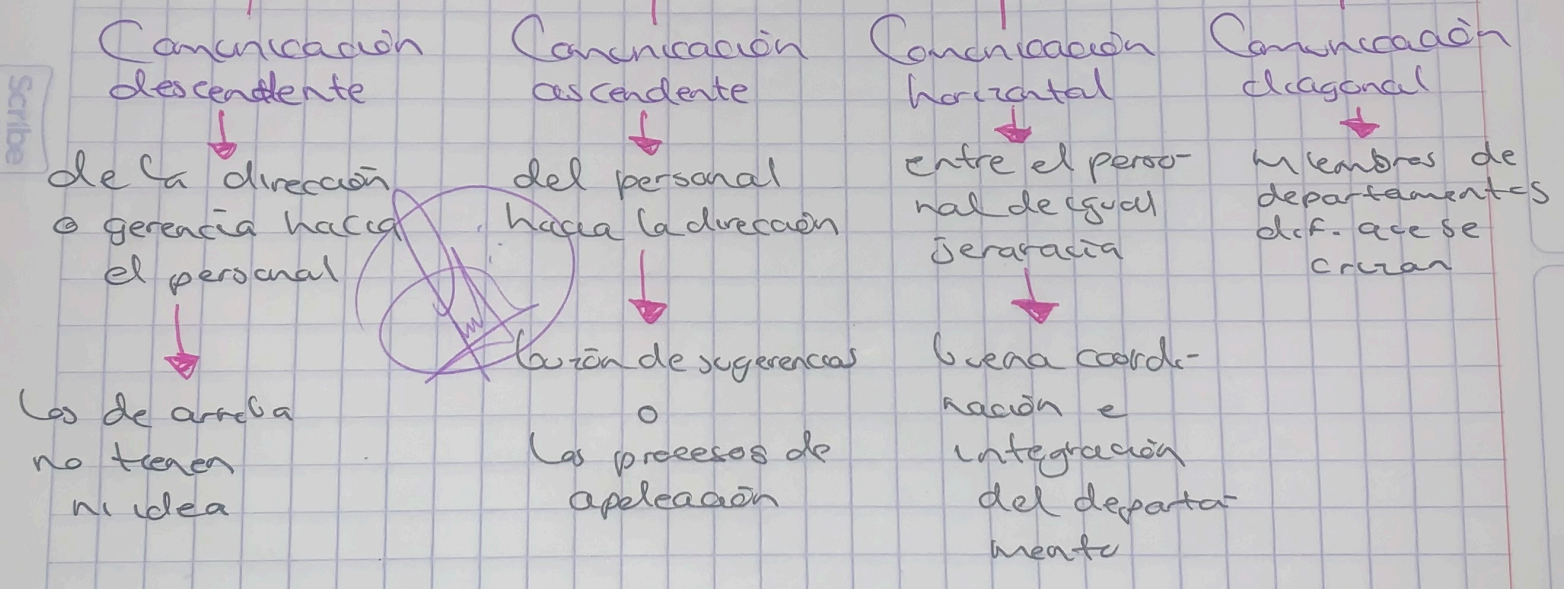 Scribe
Comunicación
descendente
de la dirección
o gerencia hacia
el personal
los de arriba
no tienen
ni idea
Comunicación
ascendente
del personal
hacia la dirección
buzón de sugerencias
o
los procesos de
apelación
Comunicación
horizontal
entre el perso-
nal de igual
jerarquía
buena coordi-
nación e
integración
del departa-
mento
Comunicación
diagonal
Miembros de
departamentos
dif. que se
cruzan